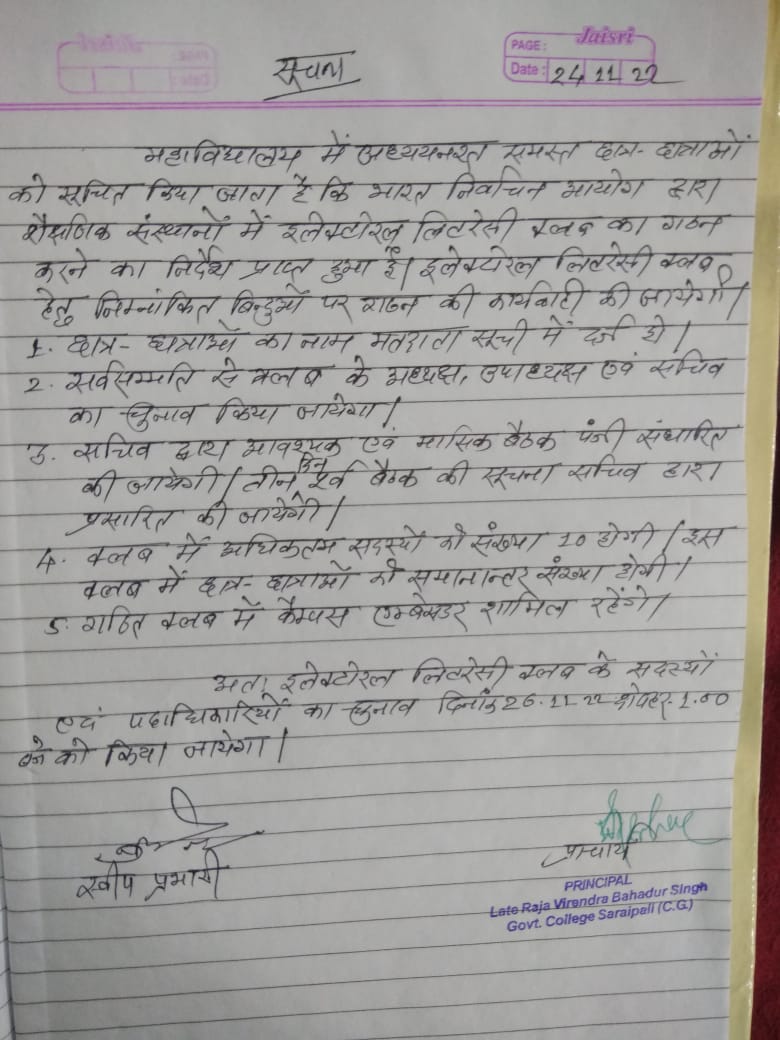 Jaisri
PAGE:
Date: 24 11 22
सूचना
महाविद्यालय में अध्ययनरत समस्त छात्र-छात्राओं
को सूचित किया जाता है कि भारत निर्वाचन आयोग द्वारा
शैक्षणिक संस्थानों में इलेक्टोरेल लिटरेसी क्लब का गठन
करने का निर्देश प्राप्त हुआ है। इलेक्टोरेल लिटरेसी क्लब
हेतु निम्नांकित बिन्दुओं पर गठन की कार्यवाही की जायेगी।
1. छात्र-छात्राओं का नाम मतदाता सूची में दर्ज हो।
2. सर्वसम्मति से क्लब के अध्यक्ष, उपाध्यक्ष एवं सचिव
का चुनाव किया जायेगा।
3. सचिव द्वारा आवश्यक एवं मासिक बैठक पंजी संधारित
की जायेगी। तीन दिन पूर्व बैठक की सूचना सचिव द्वारा
प्रसारित की जायेगी।
4. क्लब में अधिकतम सदस्यों की संख्या 10 होगी। इस
क्लब में छात्र-छात्राओं की समानान्तर संख्या होगी।
5. गठित क्लब में कैम्पस एम्बेसडर शामिल रहेंगे।
अतः इलेक्टोरेल लिटरेसी क्लब के सदस्यों
एवं पदाधिकारियों का चुनाव दिनांक 26.11.22 दोपहर 1.00
बजे को किया जायेगा।
स्वीप प्रभारी
प्राचार्य
PRINCIPAL
Late Raja Virendra Bahadur Singh
Govt. College Saraipali (C.G.)